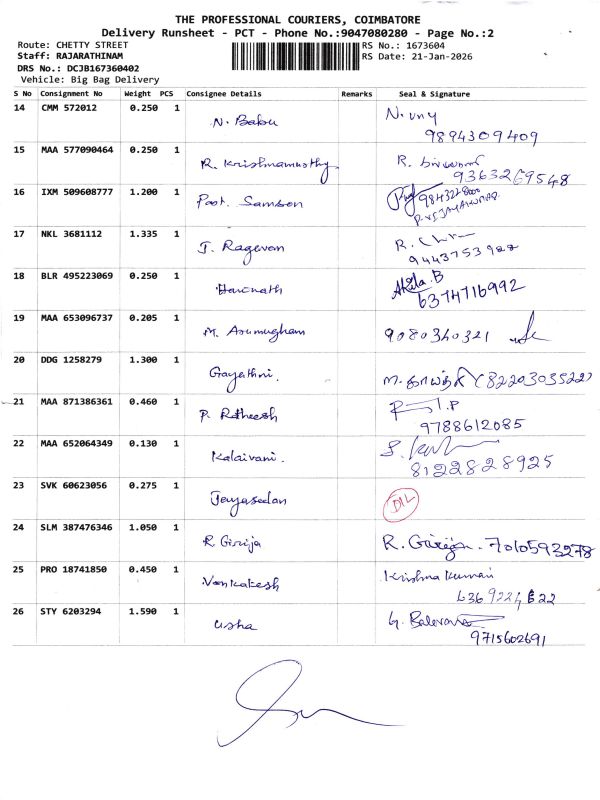 THE PROFESSIONAL COURIERS, COIMBATORE
Delivery Runsheet - PCT - Phone No.:9047080280 - Page No.:2
Route: CHETTY STREET
RS No.: 1673604
Staff: RAJARATHINAM
RS Date: 21-Jan-2026
DRS No.: DCJB167360402
Vehicle: Big Bag Delivery
S No Consignment No Weight PCS Consignee Details Remarks Seal & Signature
14 CMM 572012 0.250 1 N. Babu
9894309409
15 MAA 577090464 0.250 1 R. Krishnamurthy R.
9363269548
16 IXM 509608777 1.200 1 Post. Samson
R VIJAYAKUMAR
17 NKL 3681112 1.335 1 J. Ragavan
9443753988
18 BLR 495223069 0.250 1 Harinath Akila.B
6374716992
19 MAA 653096737 0.205 1 M. Arumugham 9080340321
20 DDG 1258279 1.300 1 Gayathri. M. காயத்ரி (8220303522)
21 MAA 871386361 0.460 1 P. Ratheesh
9788612085
22 MAA 652064349 0.130 1 Kalaivani.
8122828925
23 SVK 60623056 0.275 1 Jeyaseelan DIL
24 SLM 387476346 1.050 1 R Girija R. Girija. 7010593278
25 PRO 18741850 0.450 1 Venkatesh Krishna Kumari
26 STY 6203294 1.590 1 Usha G.
9715602691